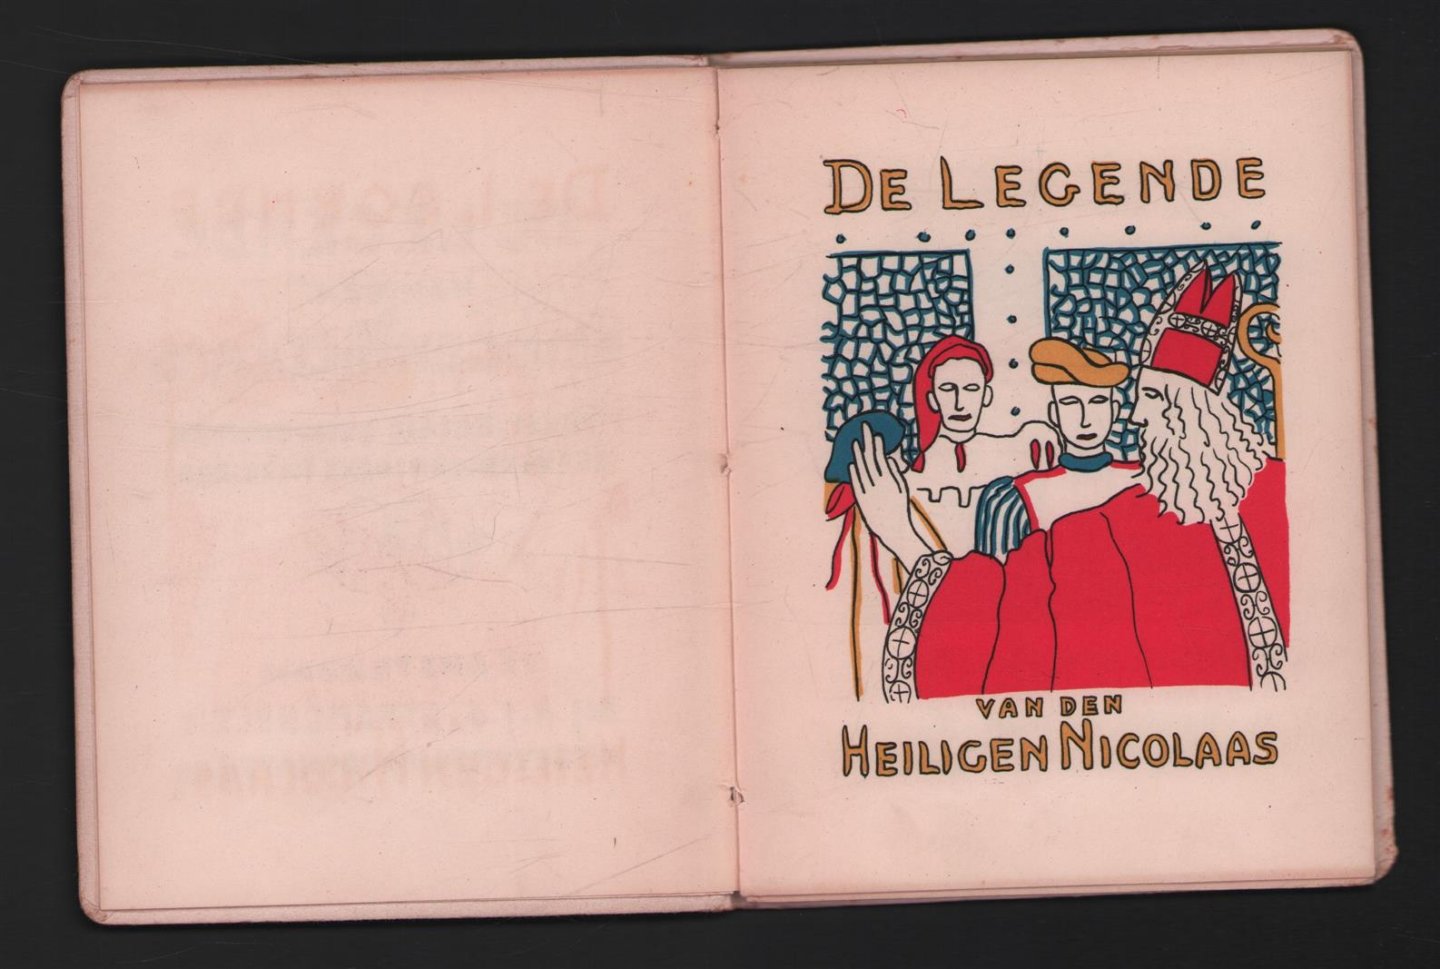 DE LEGENDE
VAN DEN
HEILIGEN NICOLAAS